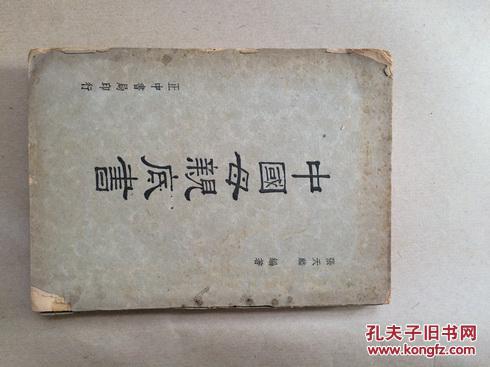 張天麟 編著
中國母親底書
正中書局印行
孔夫子旧书网
kongfz.com